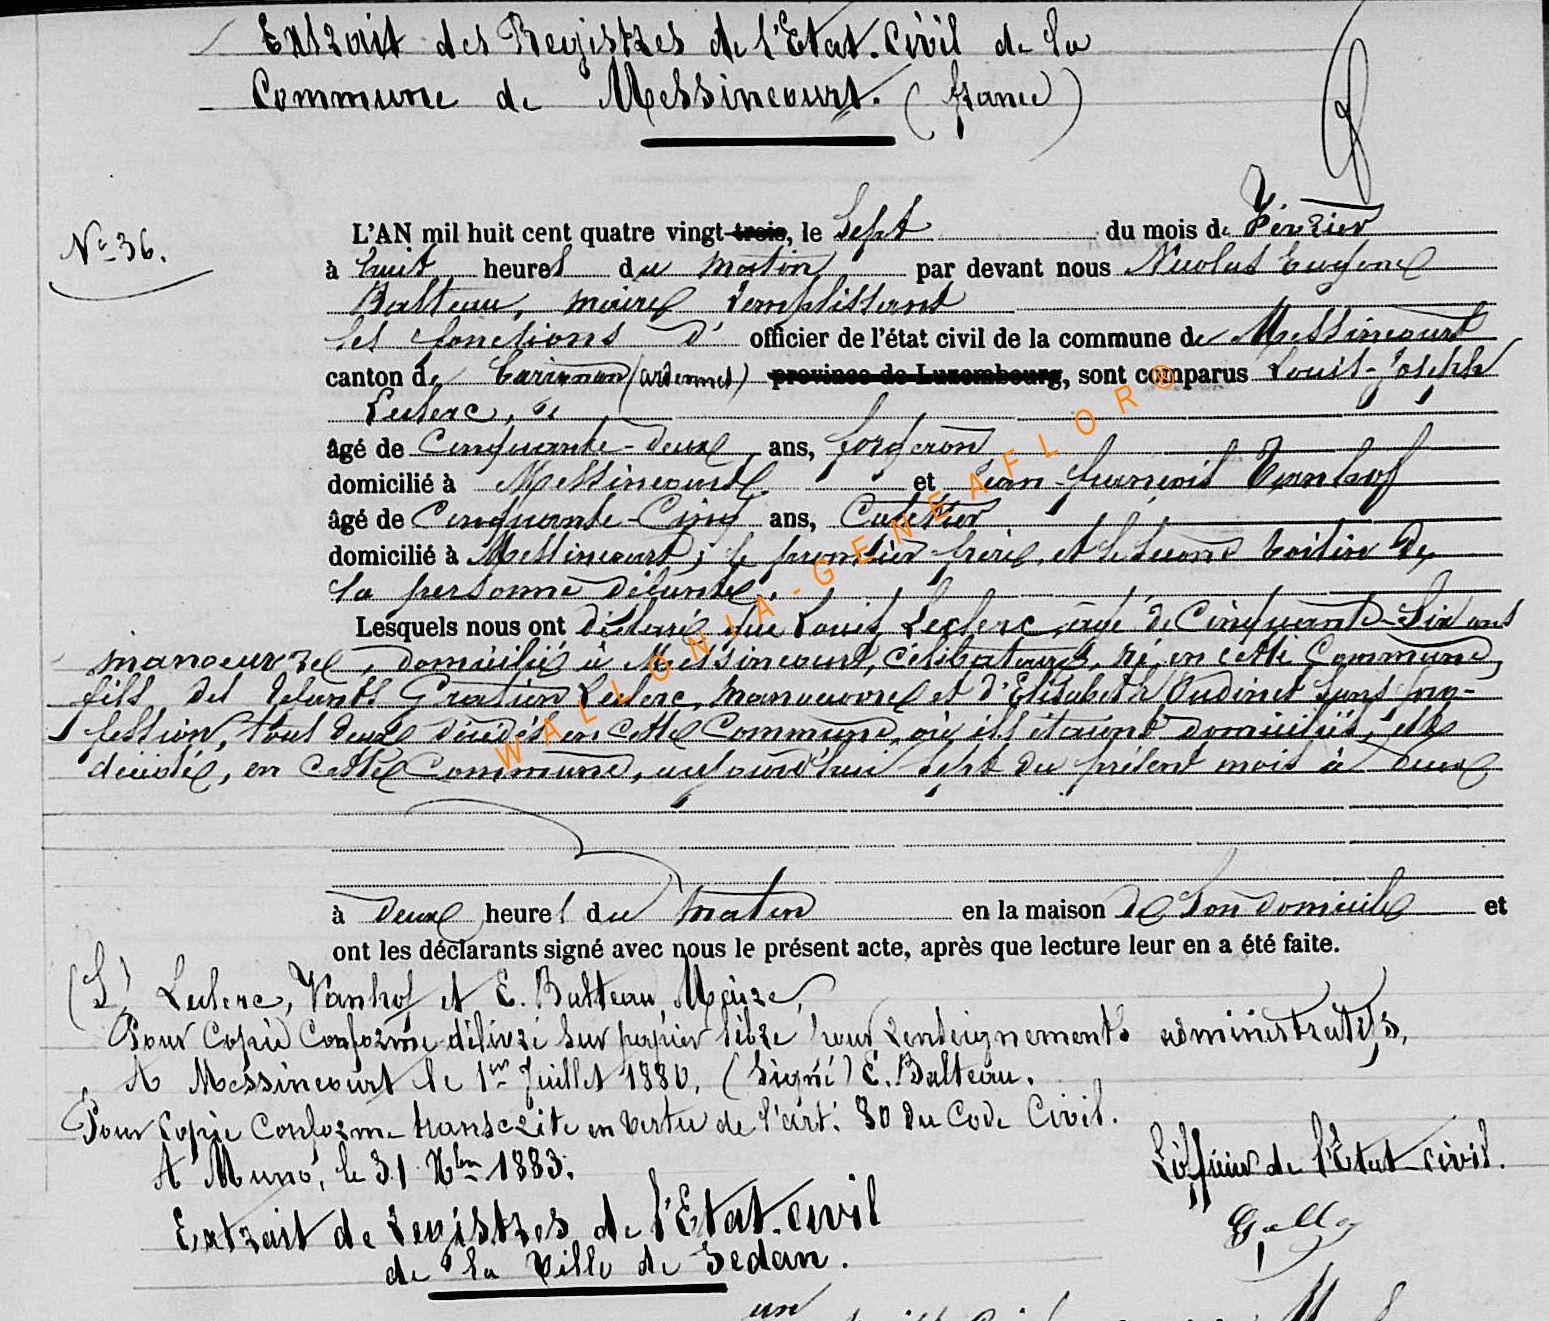 Extrait des Registres de l'Etat-civil de la
Commune de Messincourt. (france)
N° 36.
L'AN mil huit cent quatre vingt-trois, le Sept du mois de Février
à huit heures du matin par devant nous Nicolas Eugène
Balteau, maire remplissant
les fonctions d' officier de l'état civil de la commune de Messincourt
canton de Carignan (ardennes) province de Luxembourg, sont comparus Louis-Joseph
Leclerc,
âgé de Cinquante-deux ans, forgeron
domicilié à Messincourt et Jean-françois Vanhof
âgé de Cinquante-Cinq ans,
domicilié à Messincourt, le premier frère, et le second voisin de
la personne défunte.
Lesquels nous ont déclaré que Louis Leclerc, âgé de Cinquante-Six ans
manoeuvre, domicilié à Messincourt, célibataire, né en cette Commune,
fils des défunts Gratien Leclerc, manoeuvre et d'Elisabeth Oudinet sans pro-
fession, tous deux décédés en cette Commune, où ils étaient domiciliés, est
décédé, en cette Commune, aujourd'hui sept du présent mois à deux
à deux heures du matin en la maison de son domicile et
ont les déclarants signé avec nous le présent acte, après que lecture leur en a été faite.
(Sé) Leclerc, Vanhof et E. Balteau, Maire,
Pour Copie Conforme délivré sur papier libre pour renseignements administratifs,
A Messincourt le 1er Juillet 1880, (Signé) E. Balteau.
Pour Copie Conforme transcrite en vertu de l'art. 80 du Code Civil.
A Muno, le 31 Xbre 1883.
L'officier de l'Etat-civil.
Extrait de Registres de l'Etat-civil
de la Ville de Sedan.
un
WALLONIA-GENEAFLOR®